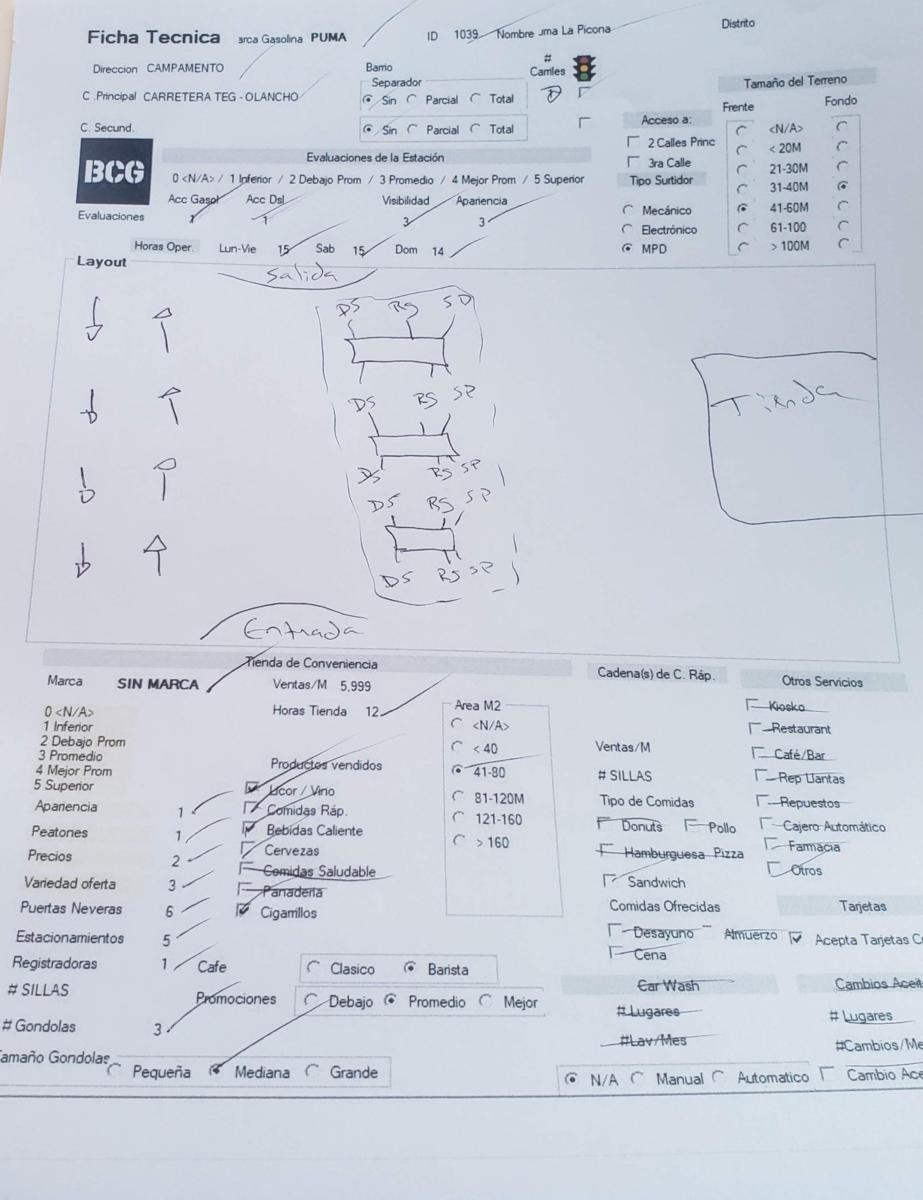 Ficha Tecnica arca Gasolina PUMA ID 1039 Nombre uma La Picona Distrito
Direccion CAMPAMENTO Barrio # Carriles
C .Principal CARRETERA TEG - OLANCHO Separador Sin Parcial Total
C. Secund. Sin Parcial Total
Acceso a:
2 Calles Princ
3ra Calle
Tipo Surtidor
Mecánico
Electrónico
MPD
Tamaño del Terreno
Frente Fondo
<N/A>
< 20M
21-30M
31-40M
41-60M
61-100
> 100M
BCG
Evaluaciones de la Estación
0 <N/A> / 1 Inferior / 2 Debajo Prom / 3 Promedio / 4 Mejor Prom / 5 Superior
Acc Gasol Acc Dsl Visibilidad Apariencia
Evaluaciones 1 1 3 3
Horas Oper. Lun-Vie 15 Sab 15 Dom 14
Layout
Salida
DS RS SP
DS RS SP
DS RS SP
DS RS SP
DS RS SP
Tienda
Entrada
Tienda de Conveniencia
Marca SIN MARCA Ventas/M 5,999
Horas Tienda 12
0 <N/A>
1 Inferior
2 Debajo Prom
3 Promedio
4 Mejor Prom
5 Superior
Apariencia 1
Peatones 1
Precios 2
Variedad oferta 3
Puertas Neveras 6
Estacionamientos 5
Registradoras 1
# SILLAS
# Gondolas 3
amaño Gondolas Pequeña Mediana Grande
Productos vendidos
Licor / Vino
Comidas Ráp.
Bebidas Caliente
Cervezas
Comidas Saludable
Panaderia
Cigarrillos
Cafe Clasico Barista
Promociones Debajo Promedio Mejor
Area M2
<N/A>
< 40
41-80
81-120M
121-160
> 160
Cadena(s) de C. Ráp.
Ventas/M
# SILLAS
Tipo de Comidas
Donuts Pollo
Hamburguesa Pizza
Sandwich
Comidas Ofrecidas
Desayuno Almuerzo
Cena
Otros Servicios
Kiosko
Restaurant
Café/Bar
Rep Llantas
Repuestos
Cajero Automático
Farmacia
Otros
Tarjetas
Acepta Tarjetas C
Car Wash
#Lugares
#Lav/Mes
N/A Manual Automatico
Cambios Aceit
# Lugares
#Cambios/Me
Cambio Ace